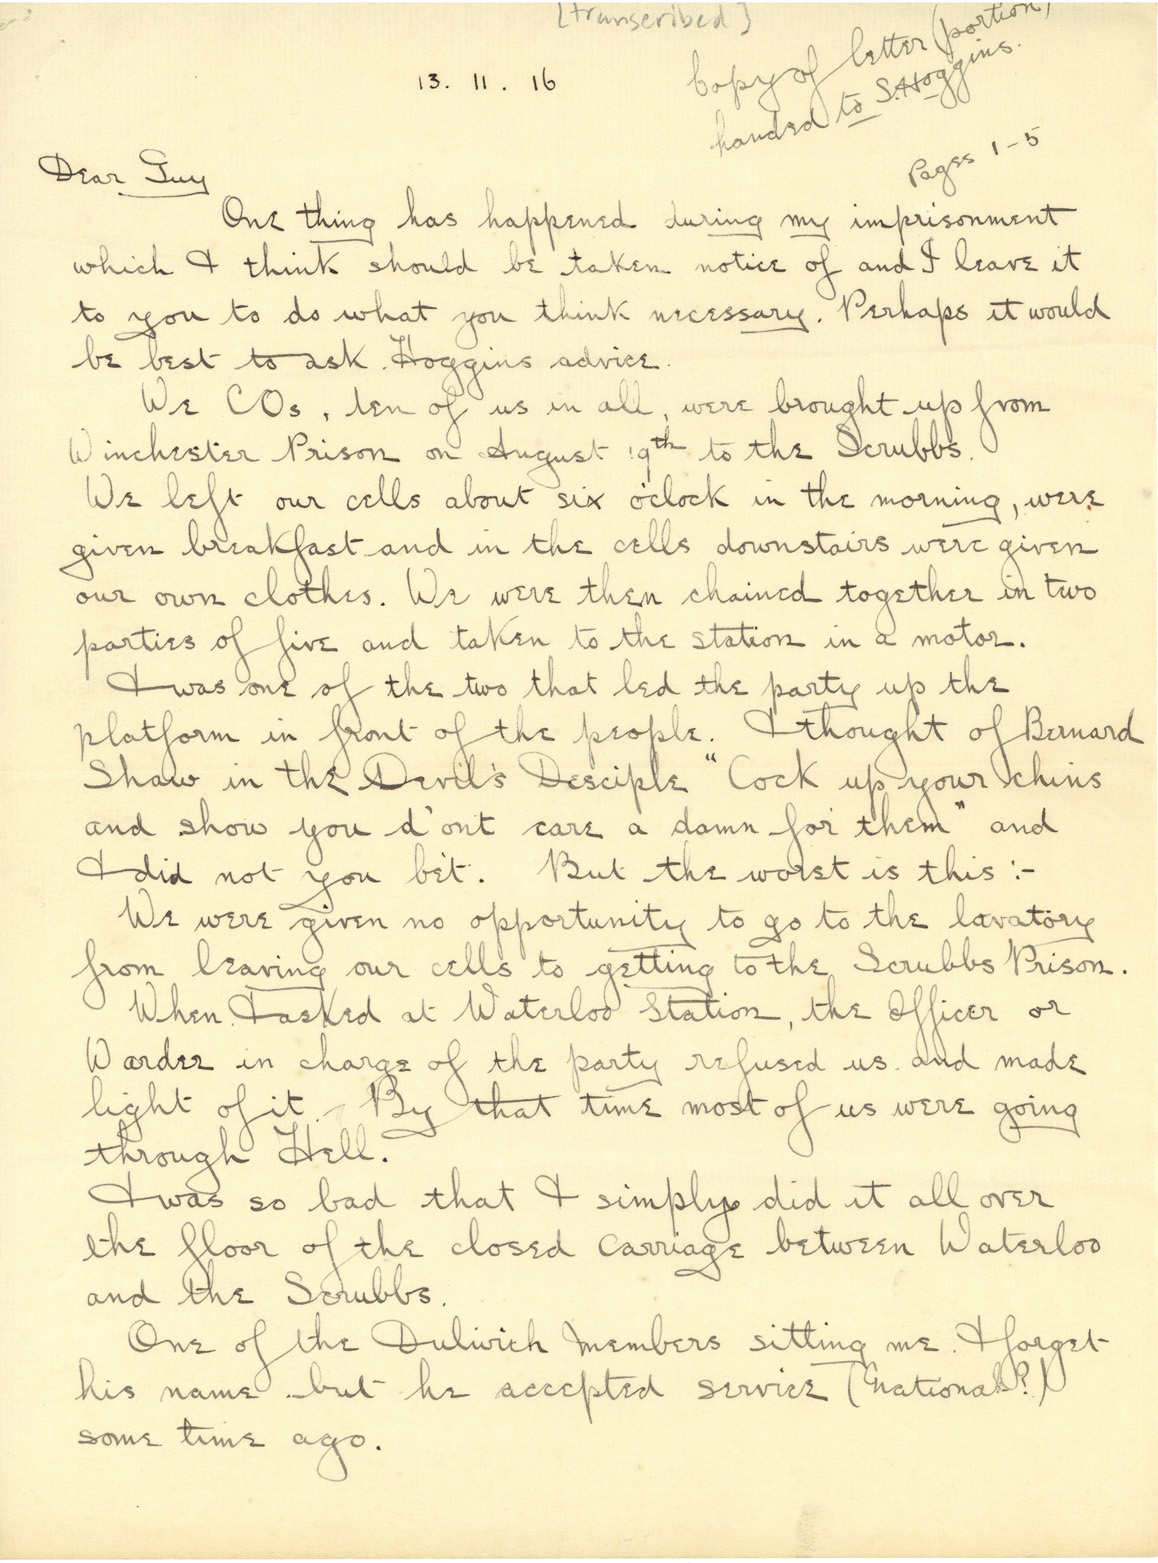 [transcribed]
Copy of letter (portion)
handed to S. Hoggins.
Pages 1-5
13. 11. 16
Dear Guy
One thing has happened during my imprisonment
which I think should be taken notice of and I leave it
to you to do what you think necessary. Perhaps it would
be best to ask Hoggins advice.
We COs, ten of us in all, were brought up from
Winchester Prison on August 19th to the Scrubbs.
We left our cells about six o'clock in the morning, were
given breakfast and in the cells downstairs were given
our own clothes. We were then chained together in two
parties of five and taken to the station in a motor.
I was one of the two that led the party up the
platform in front of the people. I thought of Bernard
Shaw in the Devil's Desciple "Cock up your chins
and show you d'ont care a damn for them" and
I did not you bet. But the worst is this :-
We were given no opportunity to go to the lavatory
from leaving our cells to getting to the Scrubbs Prison.
When I asked at Waterloo Station, the Officer or
Warder in charge of the party refused us and made
light of it. By that time most of us were going
through Hell.
I was so bad that I simply did it all over
the floor of the closed carriage between Waterloo
and the Scrubbs.
One of the Dulwich members sitting me. I forget
his name but he accepted service (national?)
some time ago.